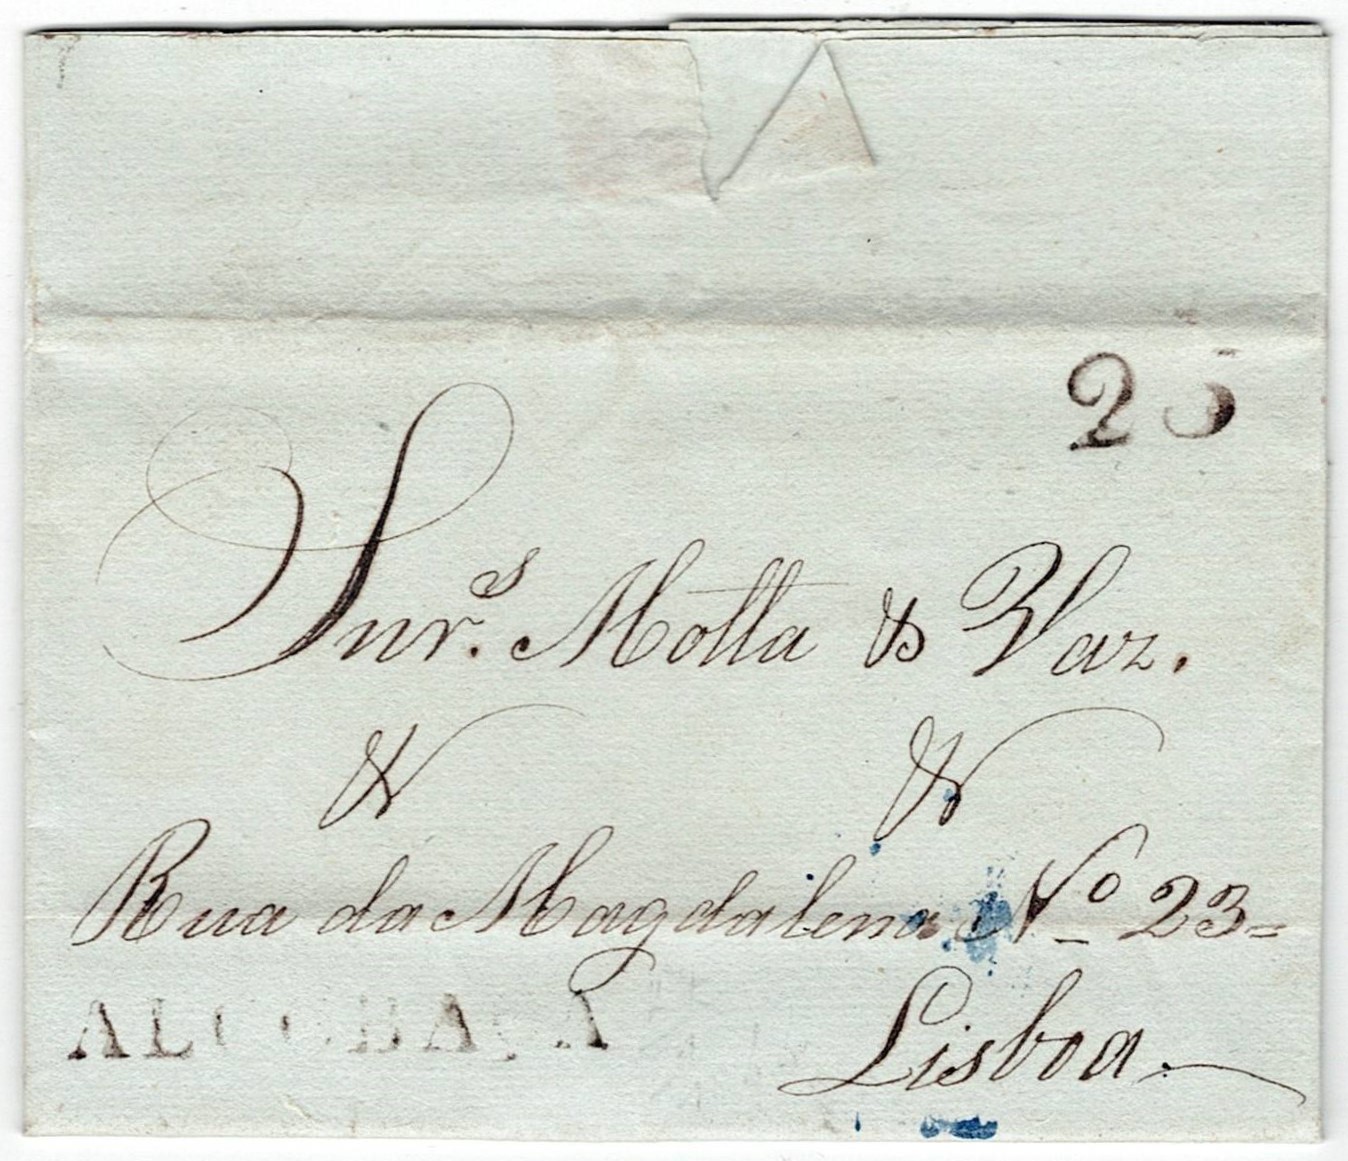 25
Snr.s Motta & Vaz.
& &
Rua da Magdalena No 23=
ALCOBAÇA
Lisboa.